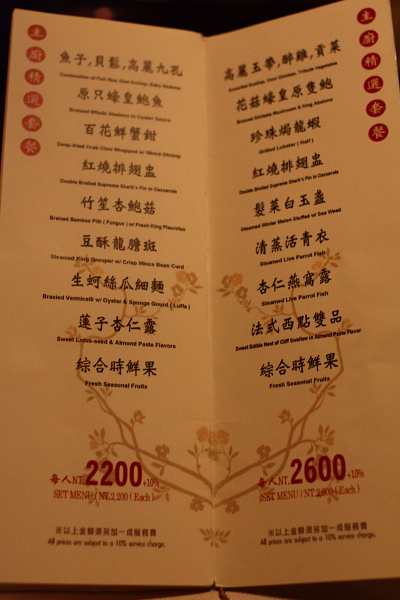 主廚精選套餐
魚子,貝鬆,高麗九孔
Combination of Fish Roe, Dice Scallop, Baby Abalone
原只蠔皇鮑魚
Braised Whole Abalone in Oyster Sauce
百花鮮蟹鉗
Deep-fried Crab Claw Wrapped w/ Mince Shrimp
紅燒排翅盅
Double Broiled Supreme Shark's Fin in Casserole
竹笙杏鮑菇
Braised Bamboo Pith ( Fungus ) w/ Fresh King Pleurotus
豆酥龍膽斑
Steamed King Grouper w/ Crisp Mince Bean Curd
生蚵絲瓜細麵
Braised Vermicelli w/ Oyster & Sponge Gourd ( Luffa )
蓮子杏仁露
Sweet Lotus-seed & Almond Paste Flavors
綜合時鮮果
Fresh Seasonal Fruits
每人NT.2200+10%
SET MENU / NT.2,200 ( Each )
※以上金額須另加一成服務費
All prices are subject to a 10% service charge.
主廚精選套餐
高麗玉夢,醉雞,貢菜
花菇蠔皇原隻鮑
Braised Shiitake Mushroom & King Abalone
珍珠焗龍蝦
Grilled Lobster ( Half )
紅燒排翅盅
Double Broiled Supreme Shark's Fin in Casserole
髮菜白玉盞
Steamed Winter Melon Stuffed w/ Sea Weed
清蒸活青衣
Steamed Live Parrot Fish
杏仁燕窩露
Steamed Live Parrot Fish
法式西點雙品
Sweet Edible Nest of Cliff Swallow in Almond Paste Flavor
綜合時鮮果
Fresh Seasonal Fruits
每人NT.2600+10%
SET MENU / NT.2,600 ( Each )
※以上金額須另加一成服務費
All prices are subject to a 10% service charge.